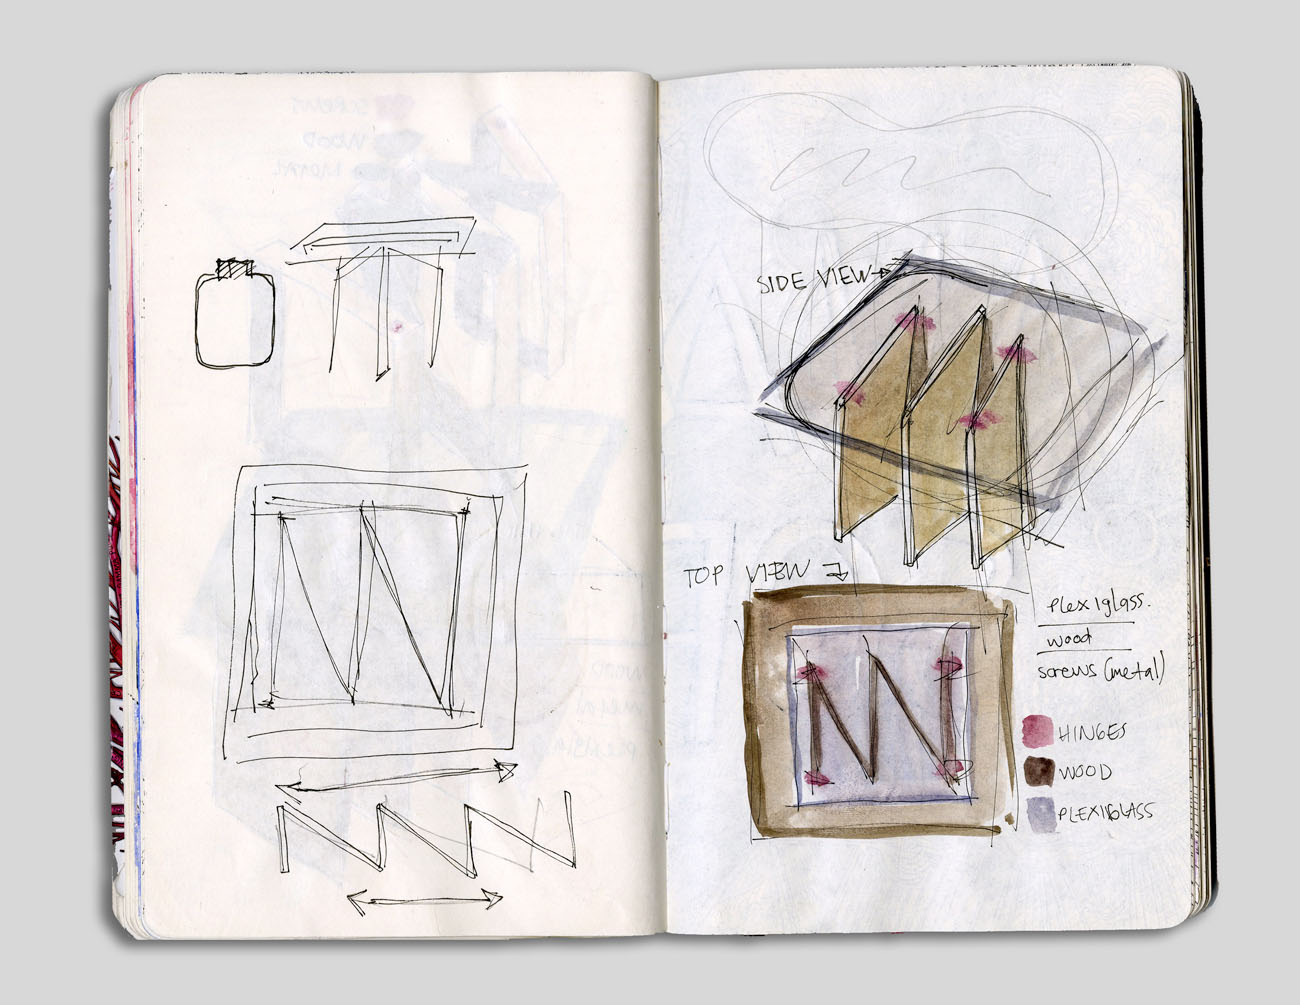 SIDE VIEW
TOP VIEW
plexiglass.
wood
screws (metal)
HINGES
WOOD
PLEXIGLASS